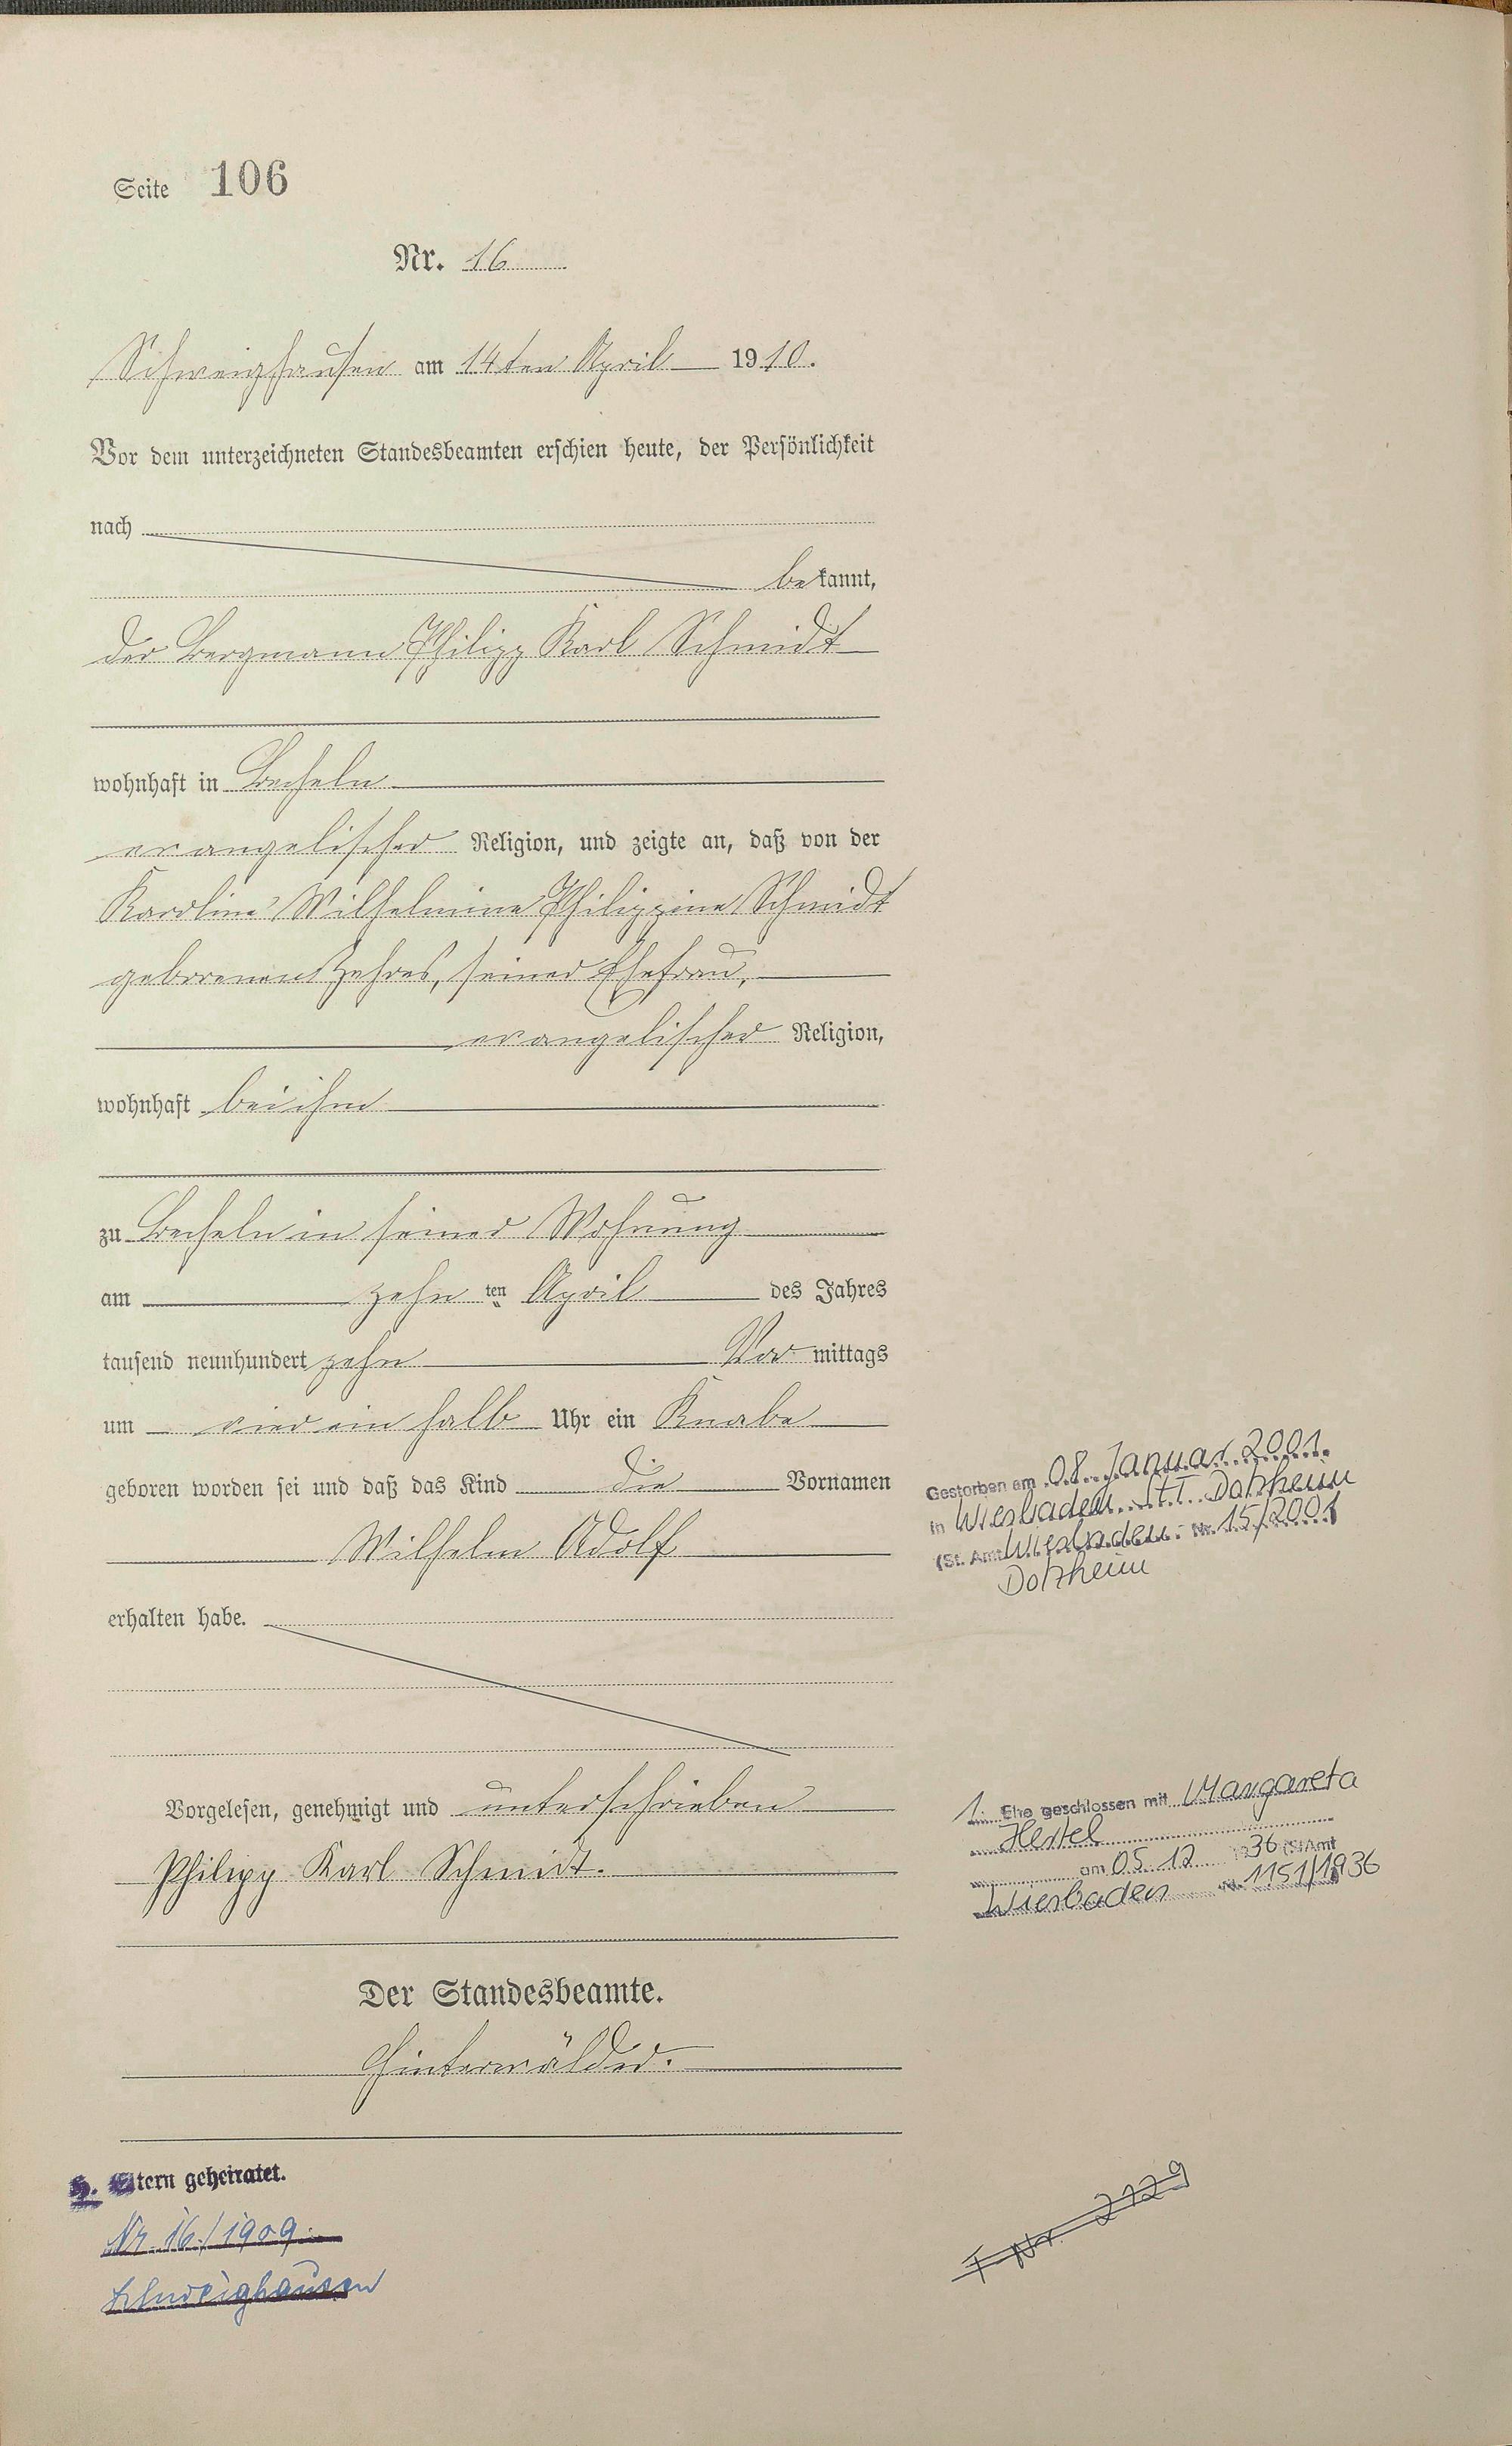 Seite 106
Nr. 16
Schweighausen am 14ten April 1910.
Vor dem unterzeichneten Standesbeamten erschien heute, der Persönlichkeit
nach
bekannt,
der Bergmann Philipp Karl Schmidt
wohnhaft in Becheln
evangelischer Religion, und zeigte an, daß von der
Karoline Wilhelmine Philippine Schmidt
geborenen, seiner Ehefrau,
evangelischer Religion,
wohnhaft bei ihm
zu Becheln in seiner Wohnung
am zehn ten April des Jahres
tausend neunhundert zehn Vor mittags
um vier ein halb Uhr ein Knabe
geboren worden sei und daß das Kind die Vornamen
Wilhelm Adolf
erhalten habe.
Vorgelesen, genehmigt und unterschrieben
Philipp Karl Schmidt.
Der Standesbeamte.
Hinterwälder.
Eltern geheiratet.
Nr. 16./1909.
Schweighausen
Gestorben am 08. Januar 2001.
in Wiesbaden Dotzheim
(St. Amt Wiesbaden- Nr. 15/2001)
Dotzheim
1. Ehe geschlossen mit Margareta
Hertel
am 05.12 1936 (StAmt
Wiesbaden Nr. 1151/1936
Nr. 2129